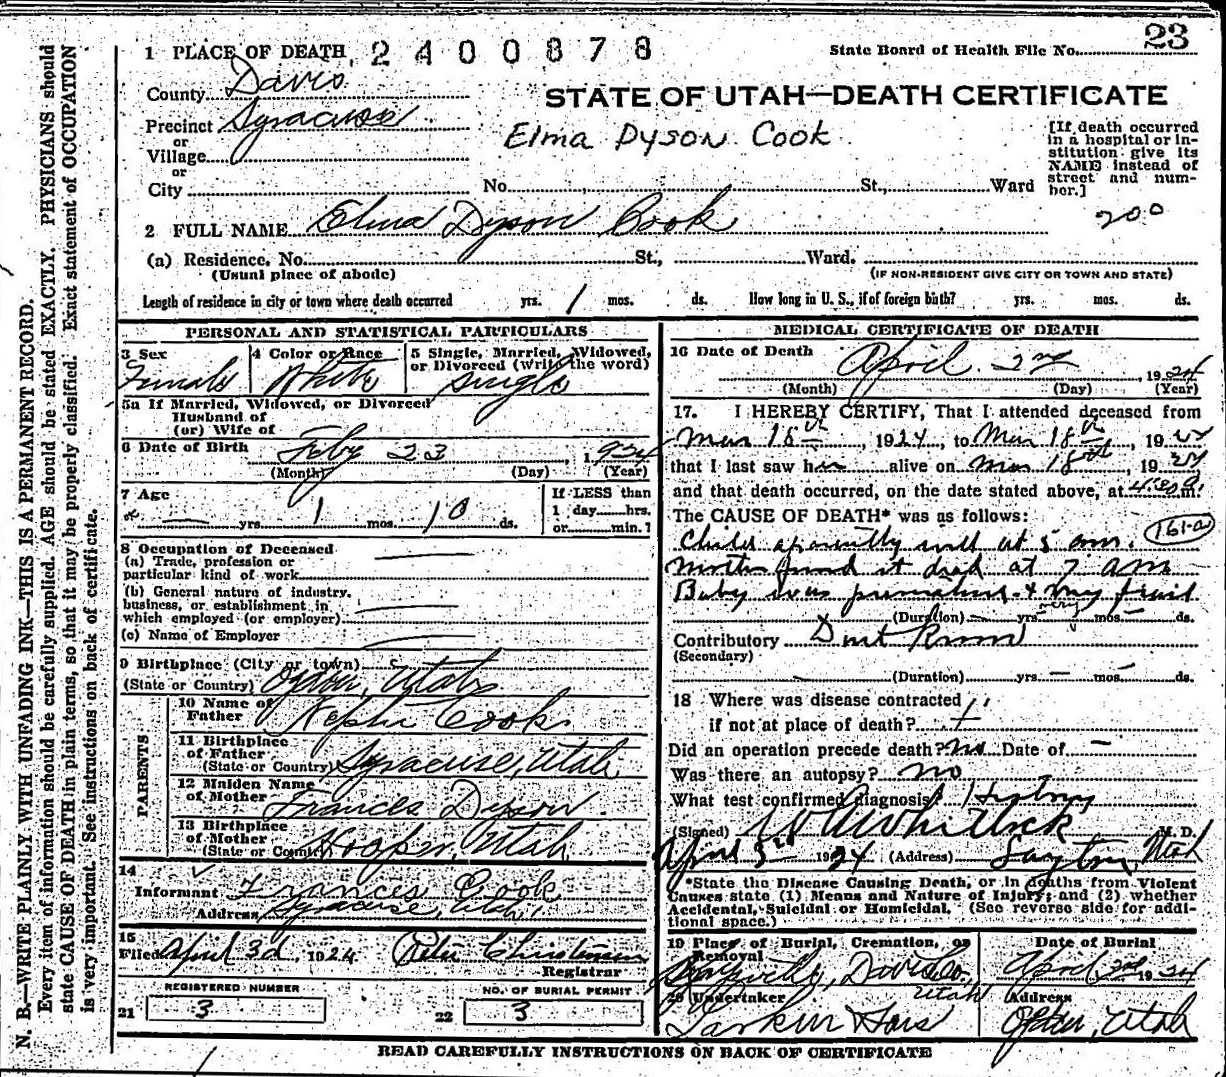 23
1 PLACE OF DEATH 2400878 State Board of Health File No.
County Davis
STATE OF UTAH—DEATH CERTIFICATE
Precinct Syracuse
or
Village
or
City No. St., Ward
Elma Dyson Cook
[If death occurred
in a hospital or in-
stitution give its
NAME instead of
street and num-
ber.]
200
2 FULL NAME Elma Dyson Cook
(a) Residence. No. St., Ward.
(Usual place of abode) (IF NON-RESIDENT GIVE CITY OR TOWN AND STATE)
Length of residence in city or town where death occurred yrs. 1 mos. ds. How long in U. S., if of foreign birth? yrs. mos. ds.
PERSONAL AND STATISTICAL PARTICULARS
3 Sex 4 Color or Race 5 Single, Married, Widowed,
or Divorced (write the word)
Female White Single
5a If Married, Widowed, or Divorced
Husband of
(or) Wife of
6 Date of Birth Feby 23 1924
(Month) (Day) (Year)
7 Age If LESS than
— yrs. 1 mos. 10 ds. 1 day hrs.
or min.?
8 Occupation of Deceased
(a) Trade, profession or
particular kind of work
(b) General nature of industry,
business, or establishment in
which employed (or employer)
(c) Name of Employer
9 Birthplace (City or town)
(State or Country) Ogden, Utah
PARENTS
10 Name of
Father Nephi Cook
11 Birthplace
of Father
(State or Country) Syracuse, Utah
12 Maiden Name
of Mother Frances Dyson
13 Birthplace
of Mother
(State or Country) Hooper, Utah
14
Informant Frances Cook
Address Syracuse, Utah
15
Filed April 3d, 1924 Peter Christensen
Registrar
REGISTERED NUMBER NO. OF BURIAL PERMIT
21 3 22 3
MEDICAL CERTIFICATE OF DEATH
16 Date of Death April 2nd 1924
(Month) (Day) (Year)
17. I HEREBY CERTIFY, That I attended deceased from
Mar 18th, 1924, to Mar 18th, 1924
that I last saw her alive on Mar 18th, 1924
and that death occurred, on the date stated above, at m.
The CAUSE OF DEATH* was as follows:
Child aparently well at 5 am. 161-a
Mother found it dead at 7 AM
Baby was premature & very frail
(Duration) — yrs. — mos. — ds.
Contributory Dont Know
(Secondary)
(Duration) yrs. — mos. — ds.
18 Where was disease contracted
if not at place of death?
Did an operation precede death? no Date of —
Was there an autopsy? no
What test confirmed diagnosis? History
(Signed) Whitlock M. D.
April 3rd 1924 (Address) Layton, Utah
*State the Disease Causing Death, or in deaths from Violent
Causes state (1) Means and Nature of Injury; and (2) whether
Accidental, Suicidal or Homicidal. (See reverse side for addi-
tional space.)
19 Place of Burial, Cremation, or Date of Burial
Removal
Kaysville, Davis Co. Utah April 3rd 1924
20 Undertaker Address
Larkin & Sons Ogden, Utah
READ CAREFULLY INSTRUCTIONS ON BACK OF CERTIFICATE
N. B.—WRITE PLAINLY WITH UNFADING INK—THIS IS A PERMANENT RECORD.
Every item of information should be carefully supplied. AGE should be stated EXACTLY. PHYSICIANS should
state CAUSE OF DEATH in plain terms, so that it may be properly classified. Exact statement of OCCUPATION
is very important. See instructions on back of certificate.